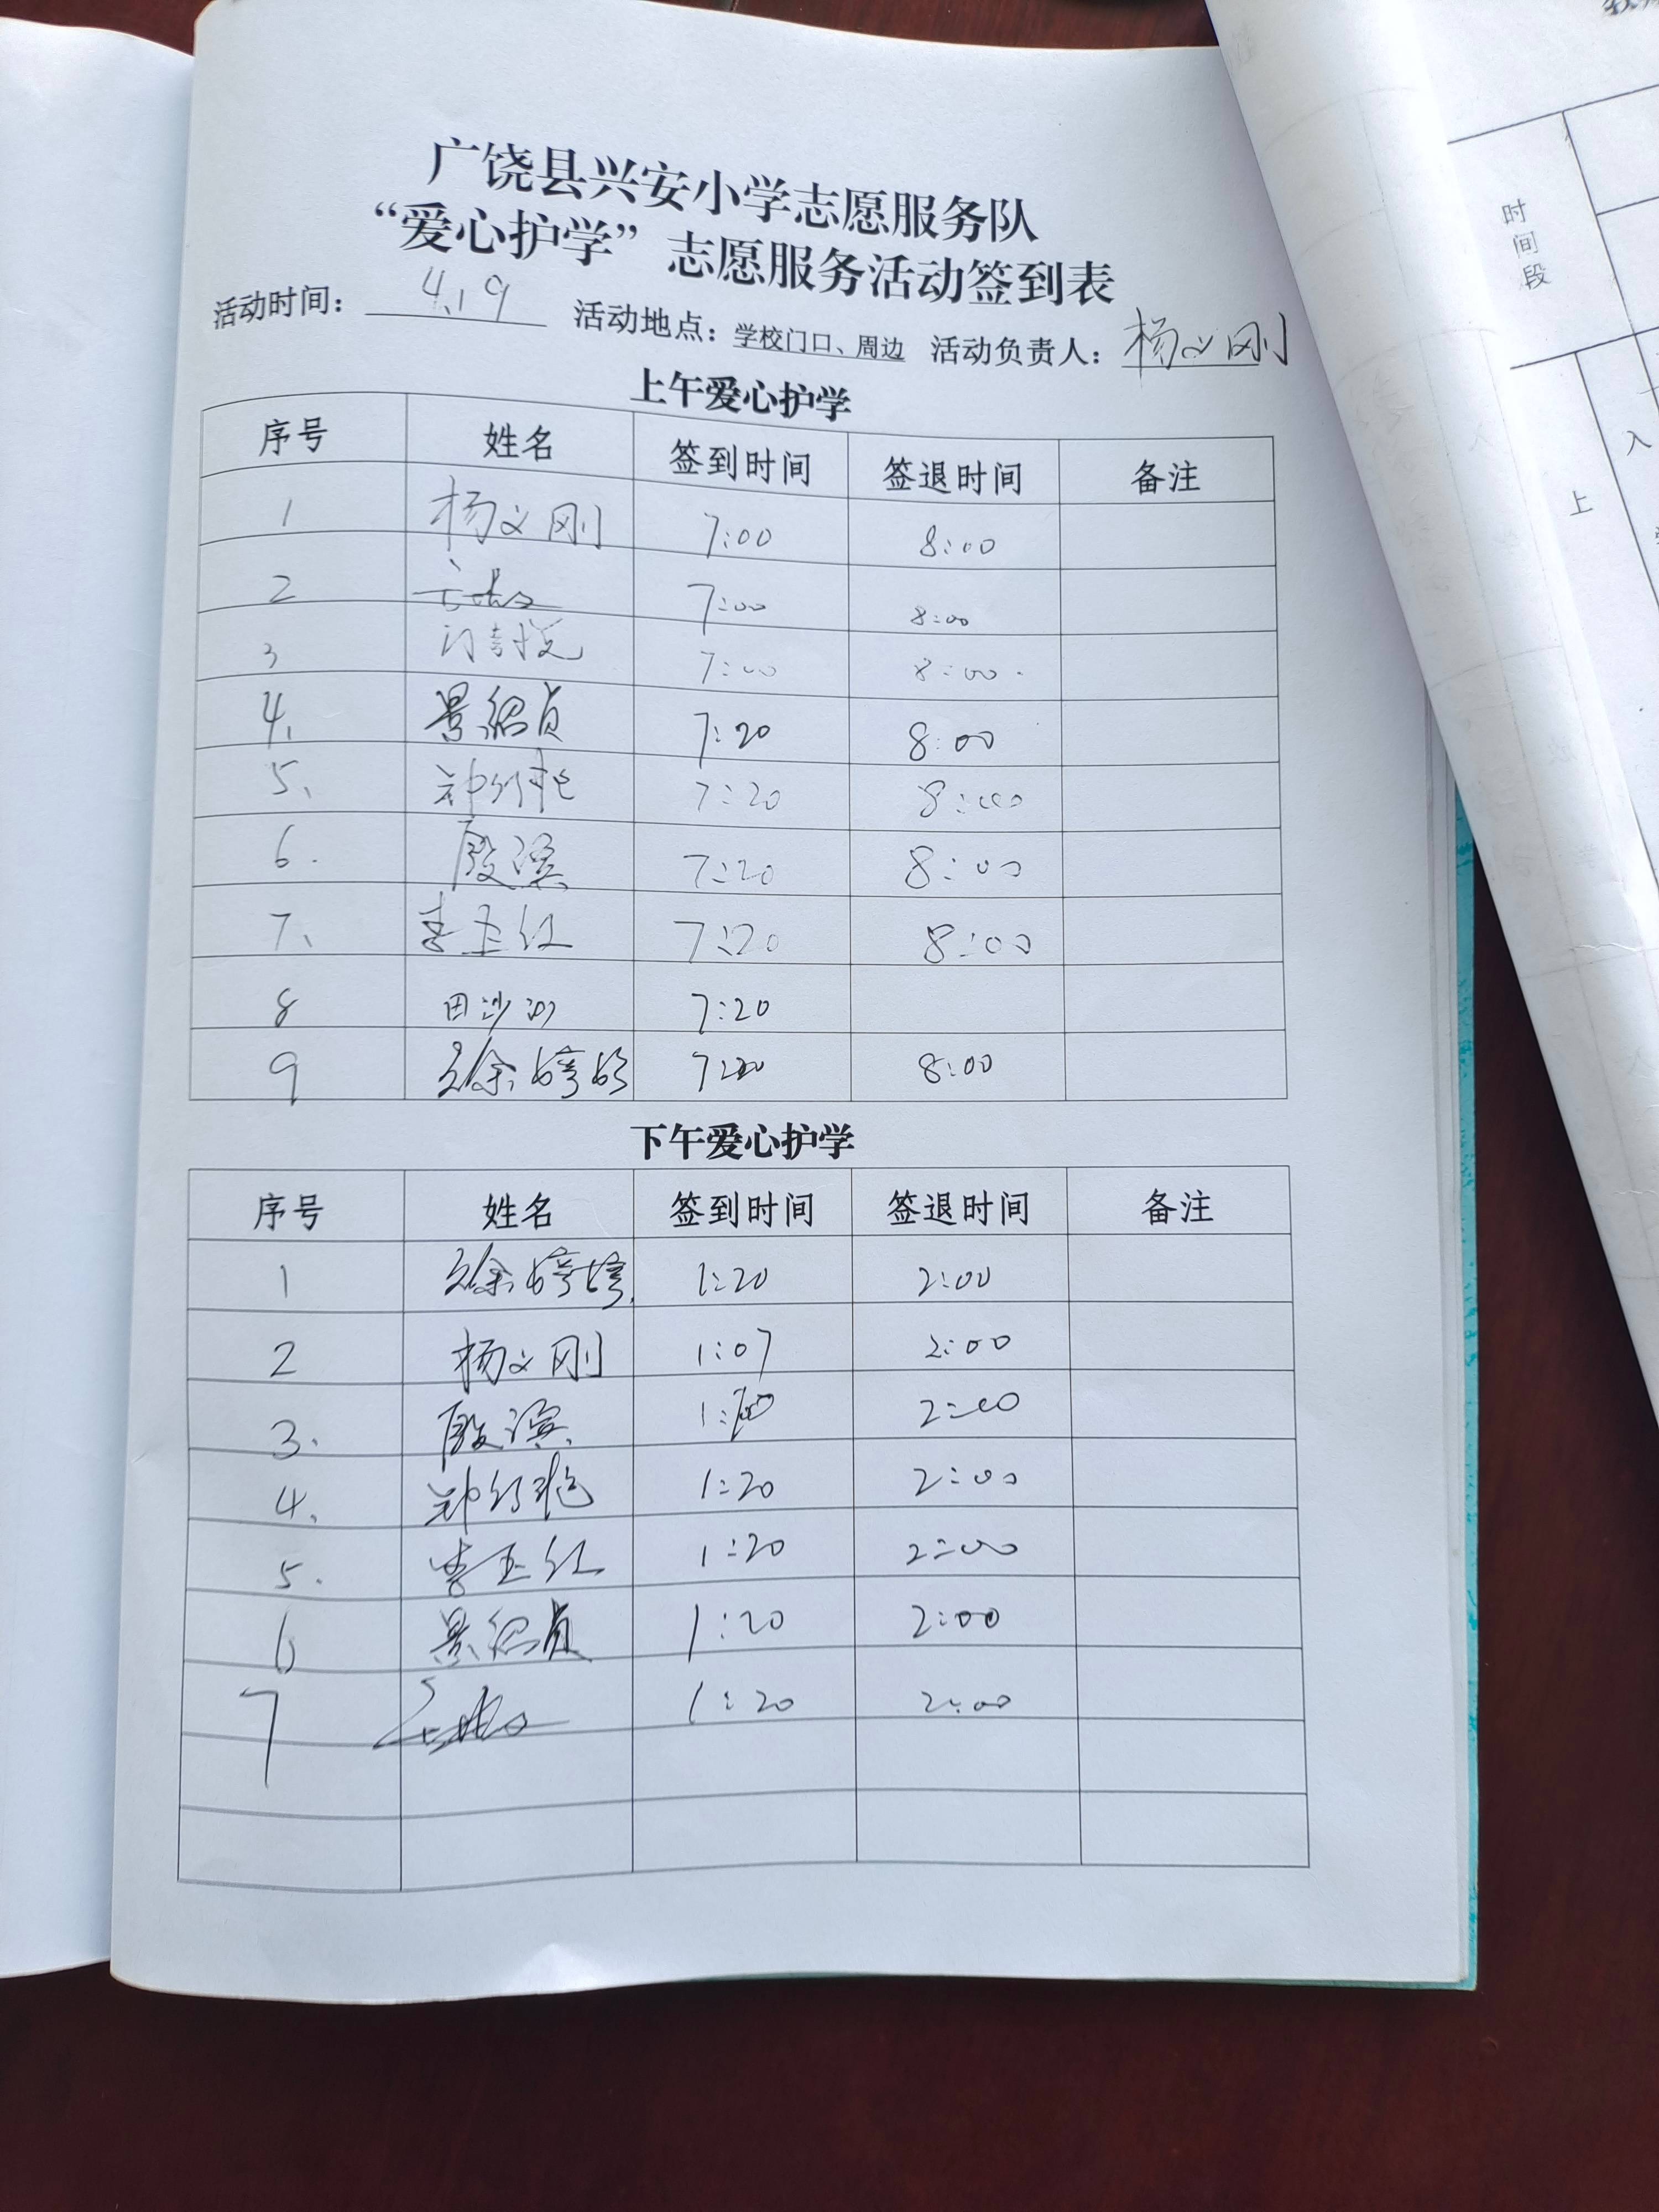 广饶县兴安小学志愿服务队
“爱心护学”志愿服务活动签到表
活动时间： 4.19 活动地点：学校门口、周边 活动负责人：杨义刚
上午爱心护学
序号 姓名 签到时间 签退时间 备注
1 杨义刚 7:00 8:00
2 7:00 8:00
3 7:00 8:00
4. 景绍贞 7:20 8:00
5. 7:20 8:00
6. 殷滨 7:20 8:00
7. 李玉红 7:20 8:00
8 田沙沙 7:20
9 徐婷婷 8:00
下午爱心护学
序号 姓名 签到时间 签退时间 备注
1 徐婷婷 1:20 2:00
2 杨义刚 1:07 2:00
3. 殷滨 2:00
4. 1:20 2:00
5. 李玉红 1:20 2:00
6 景绍贞 1:20 2:00
7 1:20 2:00
时间段
上
入